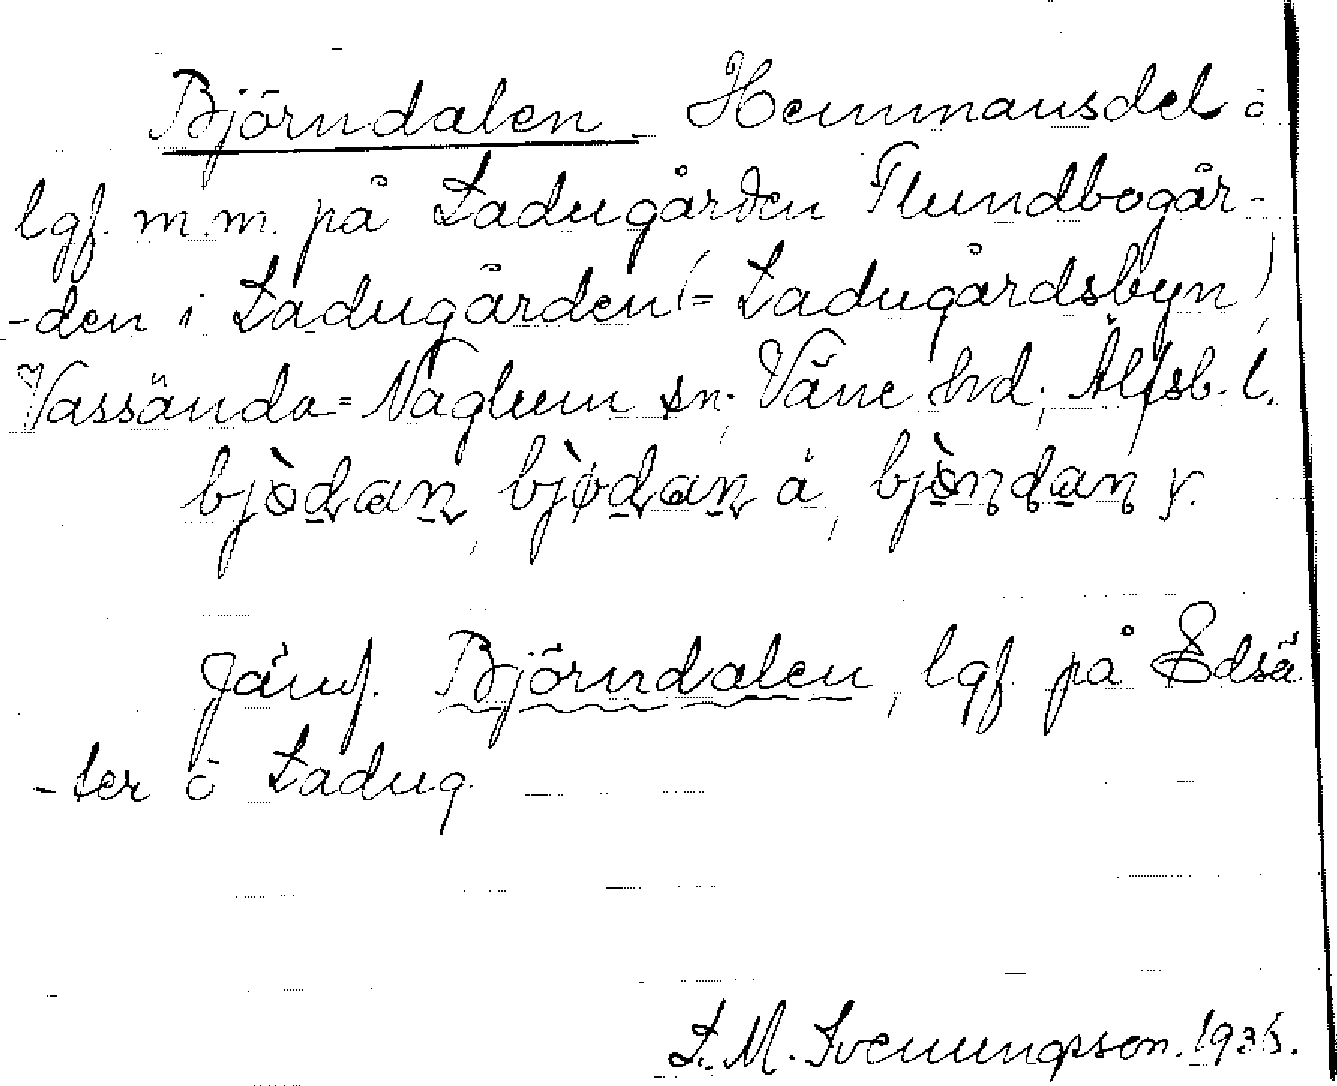 Björndalen Hemmansdel o
lgf. m.m. på Ladugården Flundbogår-
-den i Ladugården (= Ladugårdsbyn)
Vassända-Naglum sn, Väne hd, Älfsb. l.
bjòdan, bjødan å, bjòndan y.
Jämf. Björndalen, lgf. på Edsä
-ter o Ladug.
L. M. Svenungsson. 1935.